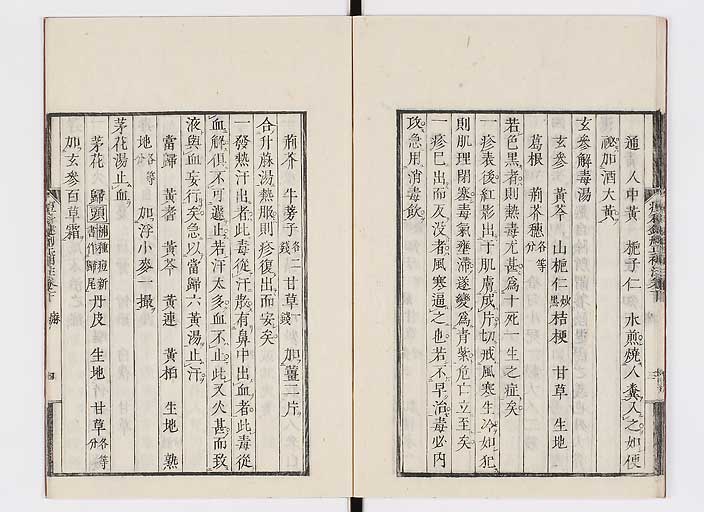 通 人中黃 梔子仁 水煎燒人糞入之如便
祕加酒大黃
玄參解毒湯
玄參 黃芩 山梔仁炒黑 桔梗 甘草 生地
葛根 荊芥穗各等
若色黑者則熱毒尤甚爲十死一生之症矣
一疹表後紅影出于肌膚成片切戒風寒生冷如犯
則肌理閉塞毒氣壅滯遂變爲青紫危亡立至矣
一疹已出而又沒者風寒逼之也若不早治毒必內
攻急用消毒飲
荊芥 牛蒡子各二錢 甘草錢 加薑二片
合升麻湯熱服則疹復出而安矣
一發熱汗出者此毒從汗散有鼻中出血者此毒從
血解俱不可遽止若汗太多血不止此又火甚而致
液與血妄行矣急以當歸六黃湯止汗
當歸 黃耆 黃芩 黃連 黃柏 生地 熟
地各等分 加浮小麥一撮
茅花湯止血
茅花 歸頭種痘新書作歸尾 丹皮 生地 甘草各等分
加玄參百草霜